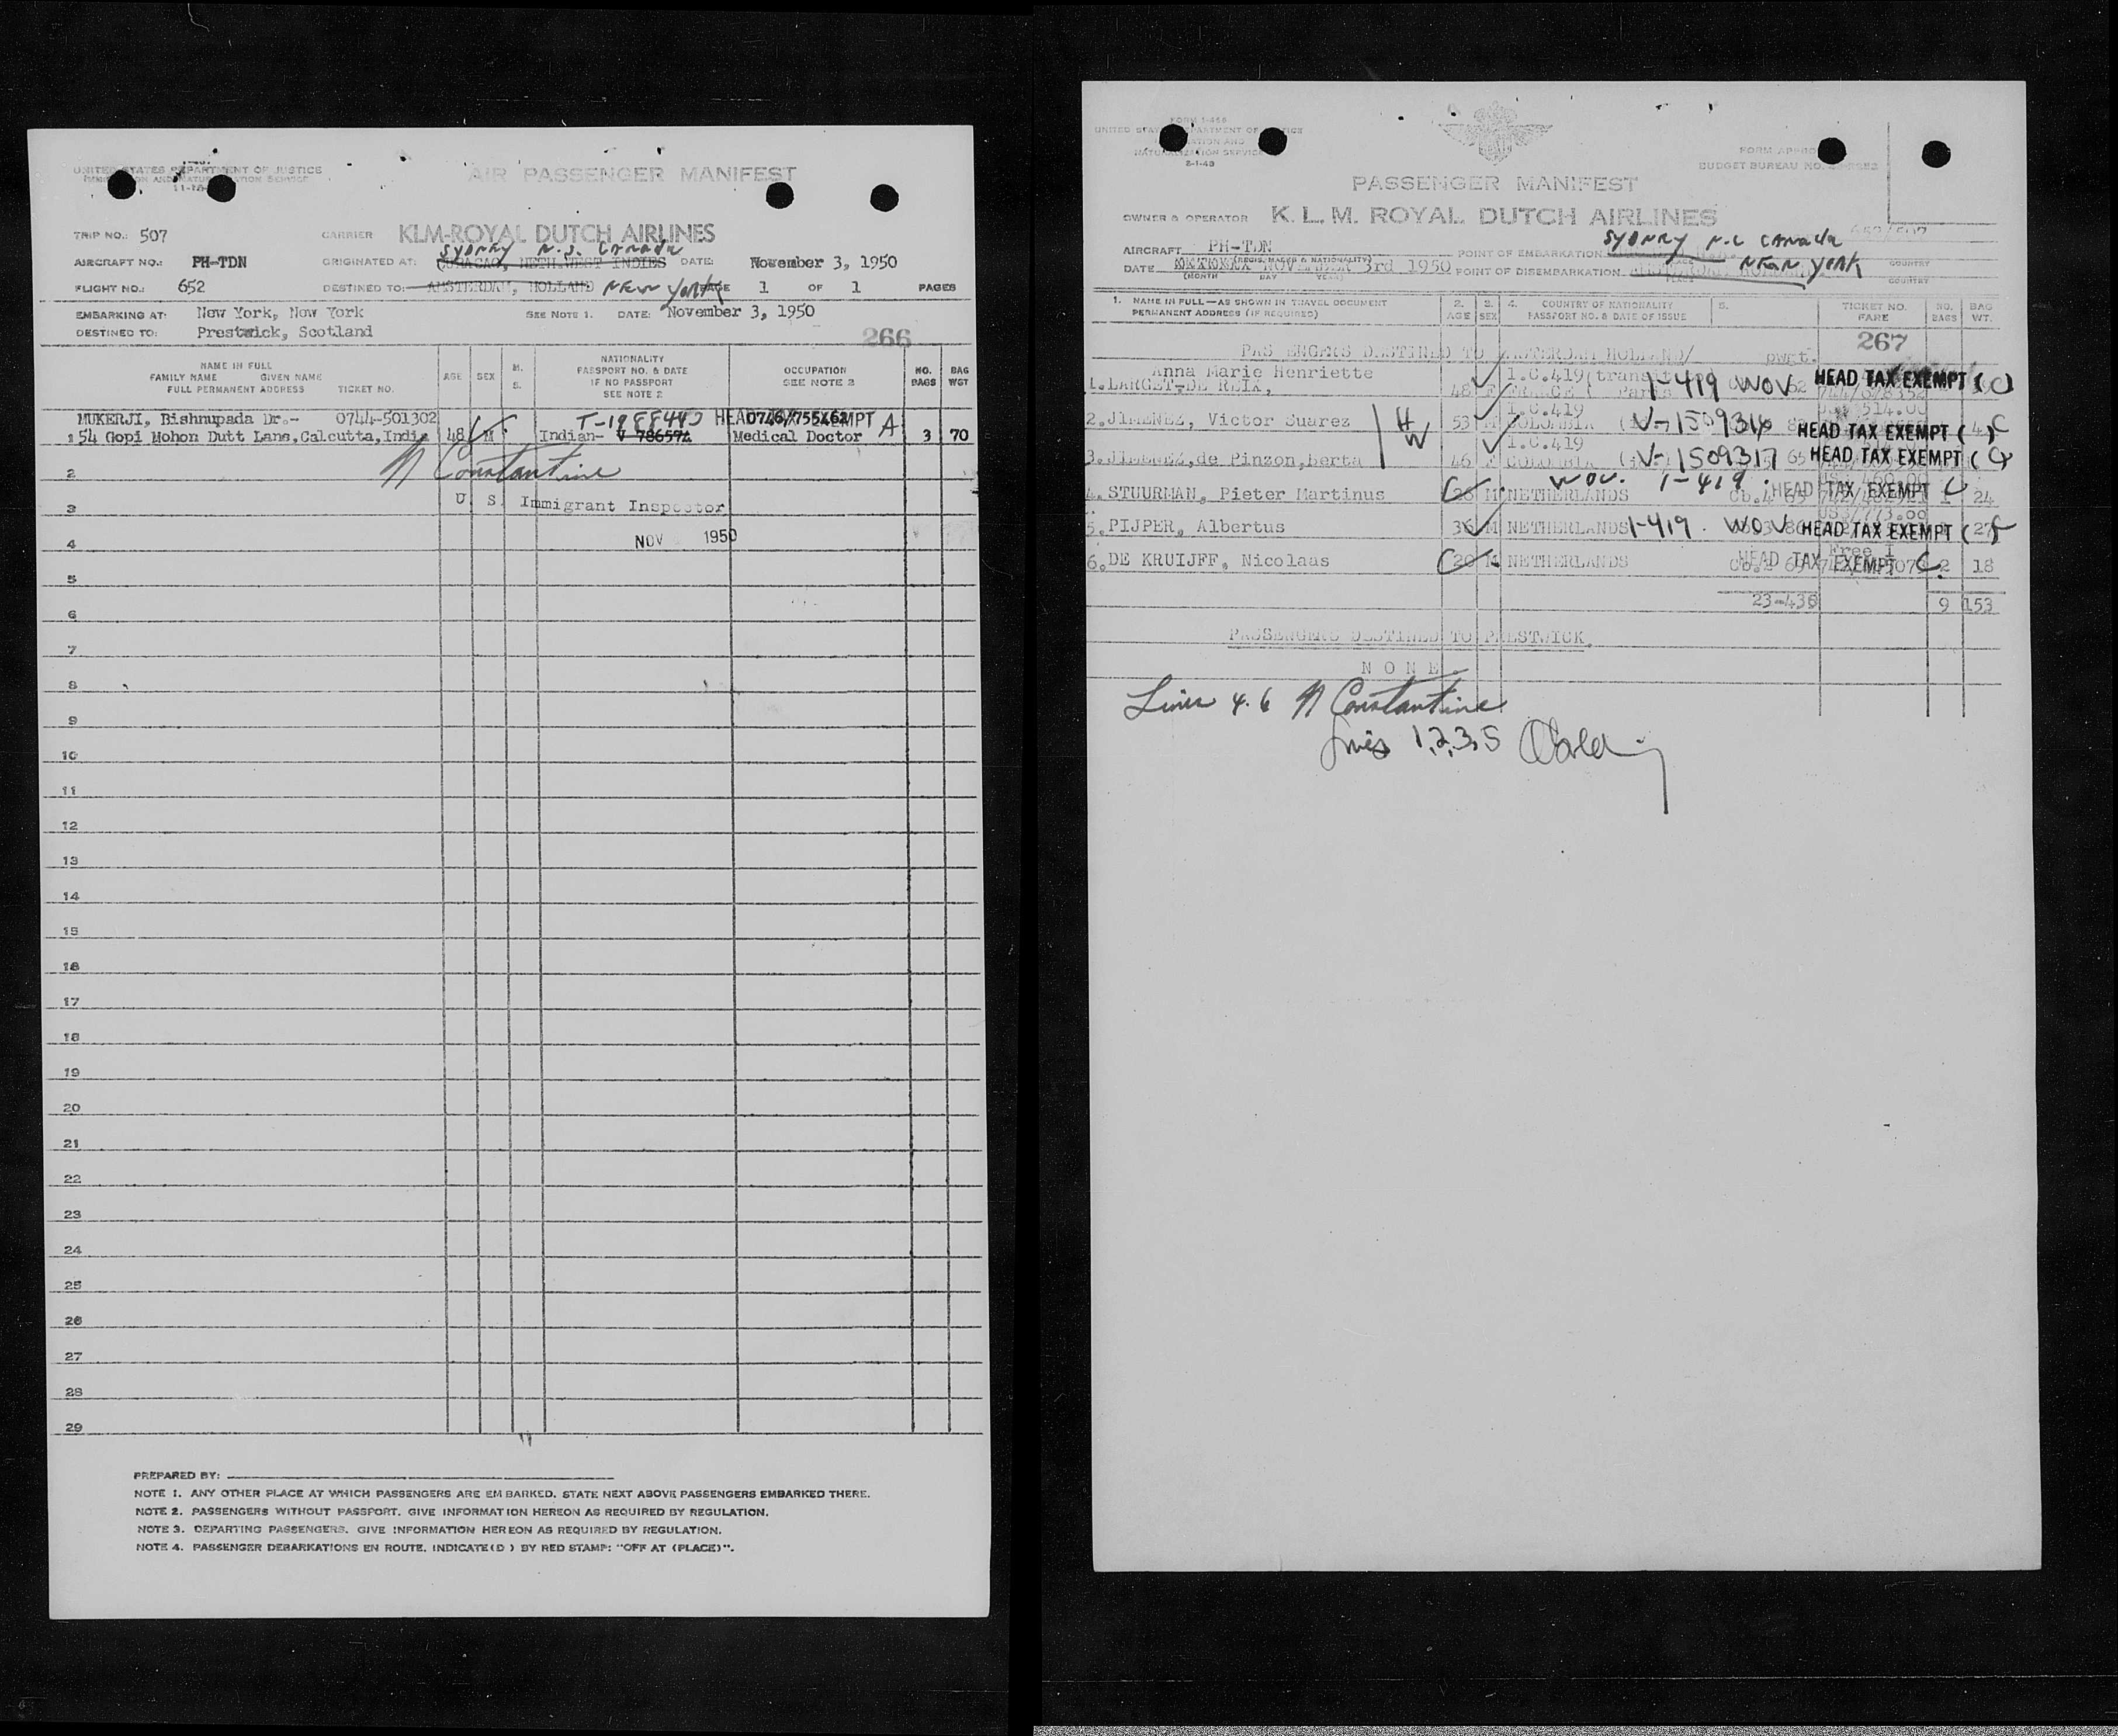 UNITED STATES DEPARTMENT OF JUSTICE
AIR PASSENGER MANIFEST
TRIP NO.: 507
CARRIER KLM-ROYAL DUTCH AIRLINES
SYDNEY N.S. CANADA
AIRCRAFT NO.: PH-TDN ORIGINATED AT: CURACAO, NETH.WEST INDIES DATE: November 3, 1950
FLIGHT NO.: 652 DESTINED TO: AMSTERDAM, HOLLAND NEW YORK PAGE 1 OF 1 PAGES
EMBARKING AT: New York, New York SEE NOTE 1. DATE: November 3, 1950
DESTINED TO: Prestwick, Scotland
266
NAME IN FULL
FAMILY NAME GIVEN NAME
FULL PERMANENT ADDRESS TICKET NO.
AGE SEX M. S.
NATIONALITY
PASSPORT NO. & DATE
IF NO PASSPORT
SEE NOTE 2
OCCUPATION
SEE NOTE 2
NO. BAGS
BAG WGT
MUKERJI, Bishnupada Dr.- 0744-501302 HEAD TAX EXEMPT A
1 54 Gopi Mohon Dutt Lane, Calcutta, India 48 M Indian- V 786574 Medical Doctor 3 70
N Constantine
2
U S Immigrant Inspector
3
NOV 1950
4
5
6
7
8
9
10
11
12
13
14
15
16
17
18
19
20
21
22
23
24
25
26
27
28
29
PREPARED BY:
NOTE 1. ANY OTHER PLACE AT WHICH PASSENGERS ARE EMBARKED. STATE NEXT ABOVE PASSENGERS EMBARKED THERE.
NOTE 2. PASSENGERS WITHOUT PASSPORT. GIVE INFORMATION HEREON AS REQUIRED BY REGULATION.
NOTE 3. DEPARTING PASSENGERS. GIVE INFORMATION HEREON AS REQUIRED BY REGULATION.
NOTE 4. PASSENGER DEBARKATIONS EN ROUTE. INDICATE(D) BY RED STAMP: "OFF AT (PLACE)".
FORM I-466
UNITED STATES DEPARTMENT OF JUSTICE
NATURALIZATION SERVICE
2-1-49
BUDGET BUREAU NO.
PASSENGER MANIFEST
OWNER & OPERATOR K. L. M. ROYAL DUTCH AIRLINES
652/507
SYDNEY N.S CANADA
AIRCRAFT PH-TDN POINT OF EMBARKATION
(REGIS. MARKS & NATIONALITY) PLACE COUNTRY
NEW YORK
DATE NOVEMBER 3rd 1950 POINT OF DISEMBARKATION
(MONTH DAY YEAR) PLACE COUNTRY
1. NAME IN FULL—AS SHOWN IN TRAVEL DOCUMENT
PERMANENT ADDRESS (IF REQUIRED)
2. AGE
3. SEX
4. COUNTRY OF NATIONALITY
PASSPORT NO. & DATE OF ISSUE
5.
TICKET NO.
FARE
NO. BAGS
BAG WT.
267
PASSENGERS DESTINED TO AMSTERDAM HOLLAND/ pwgt.
Anna Marie Henriette I.C.419(transit
1. LARGET-DE REIX, 48 F FRANCE ( Paris 1-419 WOV 62 HEAD TAX EXEMPT (C)
I.C.419 514.00
2. JIMENEZ, Victor Suarez H 53 M COLOMBIA V-1509316 HEAD TAX EXEMPT ( ) C
W I.C.419
3. JIMENEZ, de Pinzon, Berta 46 F COLOMBIA V-1509317 65 HEAD TAX EXEMPT (C)
WOV. 1-419
4. STUURMAN, Pieter Martinus 28 M NETHERLANDS HEAD TAX EXEMPT C 1 24
US$/773.00
5. PIJPER, Albertus 36 M NETHERLANDS 1-419. WOV HEAD TAX EXEMPT ( ) C 27
Free 1
6. DE KRUIJFF, Nicolaas 20 M NETHERLANDS HEAD TAX EXEMPT C. 2 18
23-436 9 153
PASSENGERS DESTINED TO PRESTWICK.
NONE
Lines 4.6 N Constantine
Lines 1,2,3,5